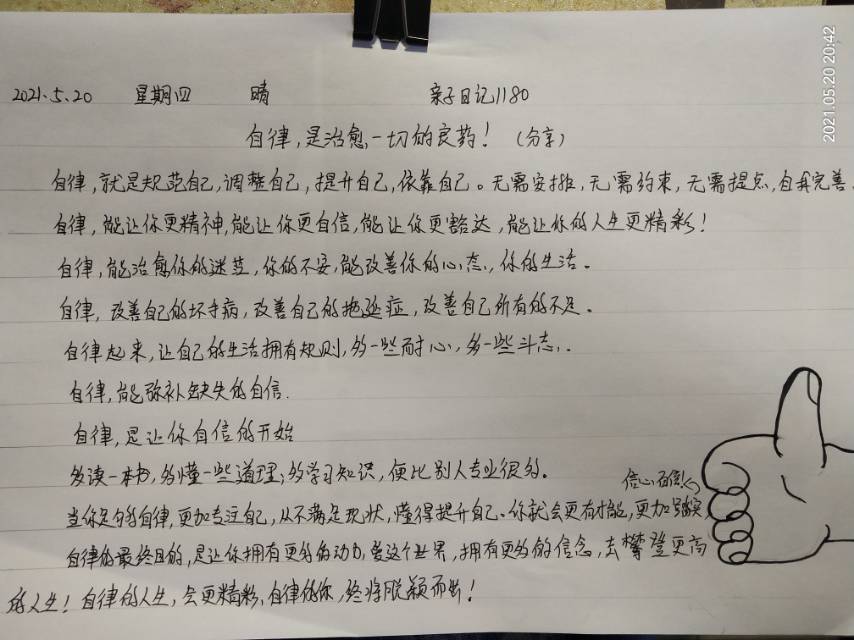 2021.05.20 20:42
2021.5.20 星期四 晴 亲子日记1180
自律,是治愈一切的良药!(分享)
自律,就是规范自己,调整自己,提升自己,依靠自己。无需安排,无需约束,无需提点,自我完善
自律,能让你更精神,能让你更自信,能让你更豁达,能让你的人生更精彩!
自律,能治愈你的迷茫,你的不安,能改善你的心态,你的生活。
自律,改善自己的坏毛病,改善自己的拖延症,改善自己所有的不足。
自律起来,让自己的生活拥有规则,多一些耐心,多一些斗志.
自律,能弥补缺失的自信.
自律,是让你自信的开始
多读一本书,多懂一些道理;多学习知识,便比别人专业很多。
信心百倍!
当你足够自律,更加专注自己,从不满足现状,懂得提升自己。你就会更有才能,更加
自律的最终目的,是让你拥有更多的动力,爱这个世界,拥有更多的信念,去攀登更高
的人生!自律的人生,会更精彩,自律的你,终将脱颖而出!